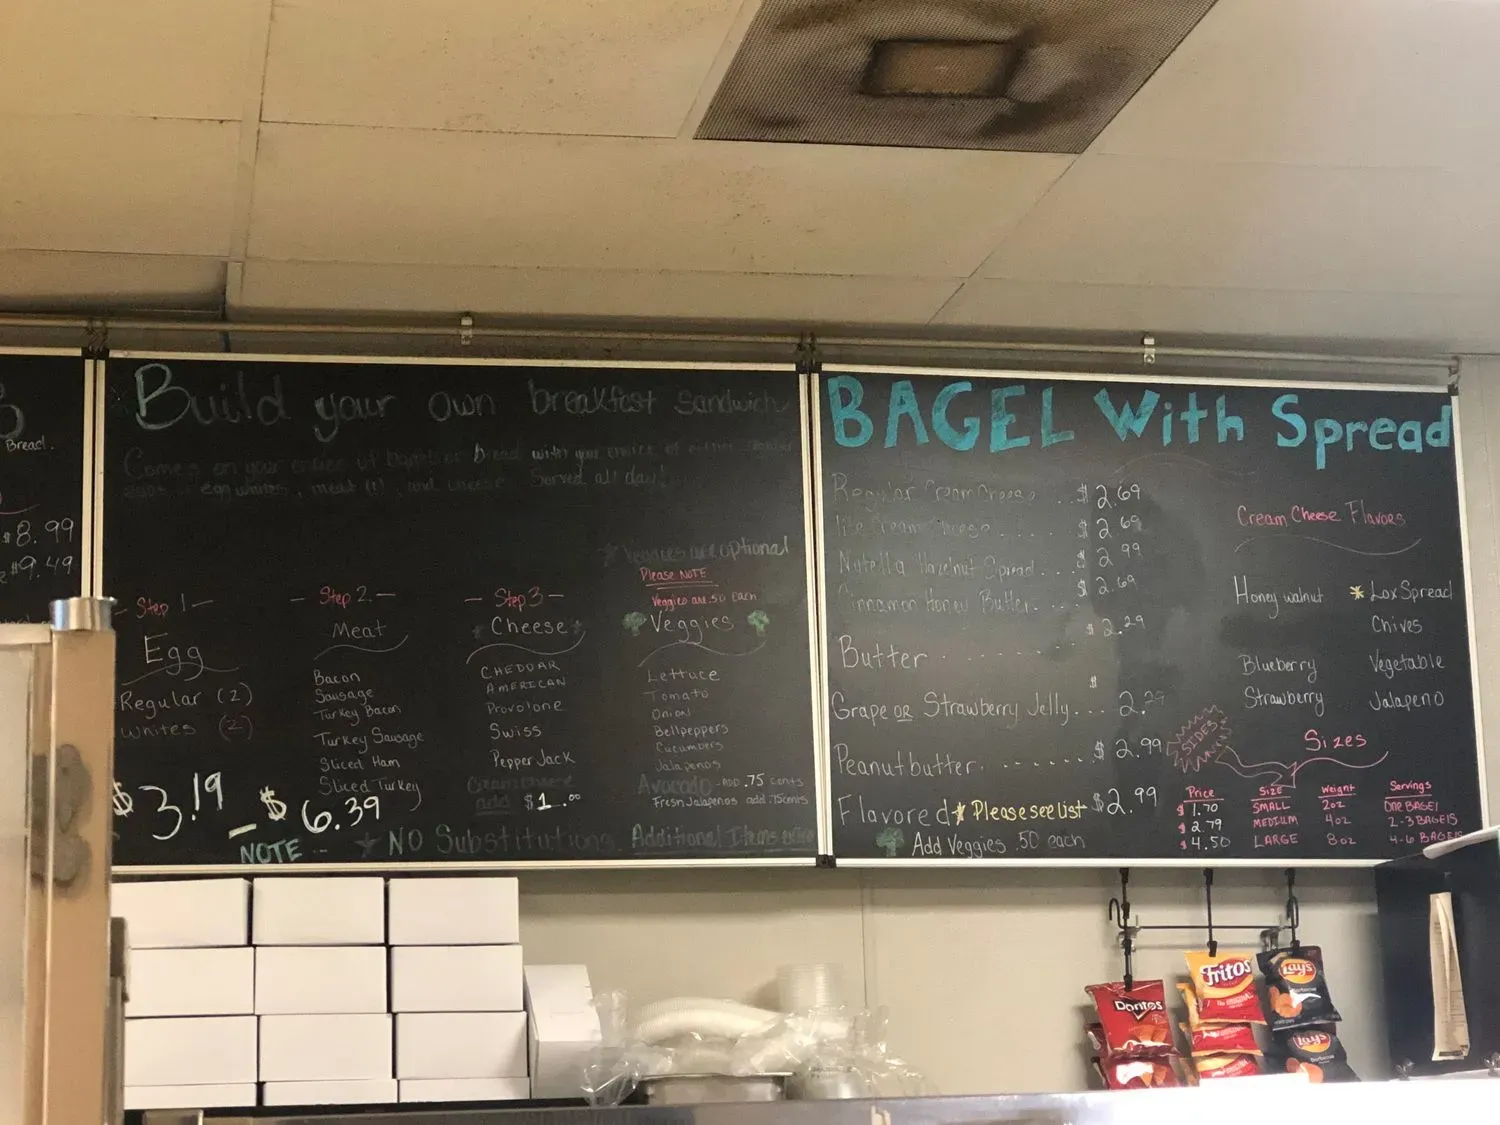 Bread.
$8.99
$9.49
Build your own breakfast sandwich
Comes on your choice of bagels or bread with your choice of either
eggs or egg whites, meat (1), and cheese. Served all day!
Veggies are optional
Please NOTE
Veggies are .50 each
- Step 1 -
Egg
Regular (2)
Whites (2)
$3.19
- Step 2 -
Meat
Bacon
Sausage
Turkey Bacon
Turkey Sausage
Sliced Ham
Sliced Turkey
- $6.39
- Step 3 -
Cheese
CHEDDAR
AMERICAN
Provolone
Swiss
Pepper Jack
add $1.00
Veggies
Lettuce
Tomato
Onion
Bellpeppers
Cucumbers
Jalapenos
Avocado - ADD .75 cents
Fresh Jalapenos add .75cents
NOTE -- ★ NO Substitutions. Additional Items extra
BAGEL With Spread
Regular Cream Cheese . . . $2.69
Lite Cream Cheese . . . . $2.69
Nutella Hazelnut Spread . . . $2.99
Cinnamon Honey Butter . . . . $2.69
Butter . . . . . . . . $2.29
Grape or Strawberry Jelly . . . $2.29
Peanutbutter . . . . . . . $2.99
Flavored * Please see list $2.99
Add Veggies .50 each
Cream Cheese Flavors
Honey walnut * Lox Spread
Chives
Blueberry Vegetable
Strawberry Jalapeno
SIDES
Sizes
Price SIZE Weight Servings
$1.70 SMALL 2oz ONE BAGEL
$2.79 MEDIUM 4oz 2-3 BAGELS
$4.50 LARGE 8oz 4-6 BAGELS
Doritos
Fritos
Lay's
Barbecue
Lay's
Barbecue